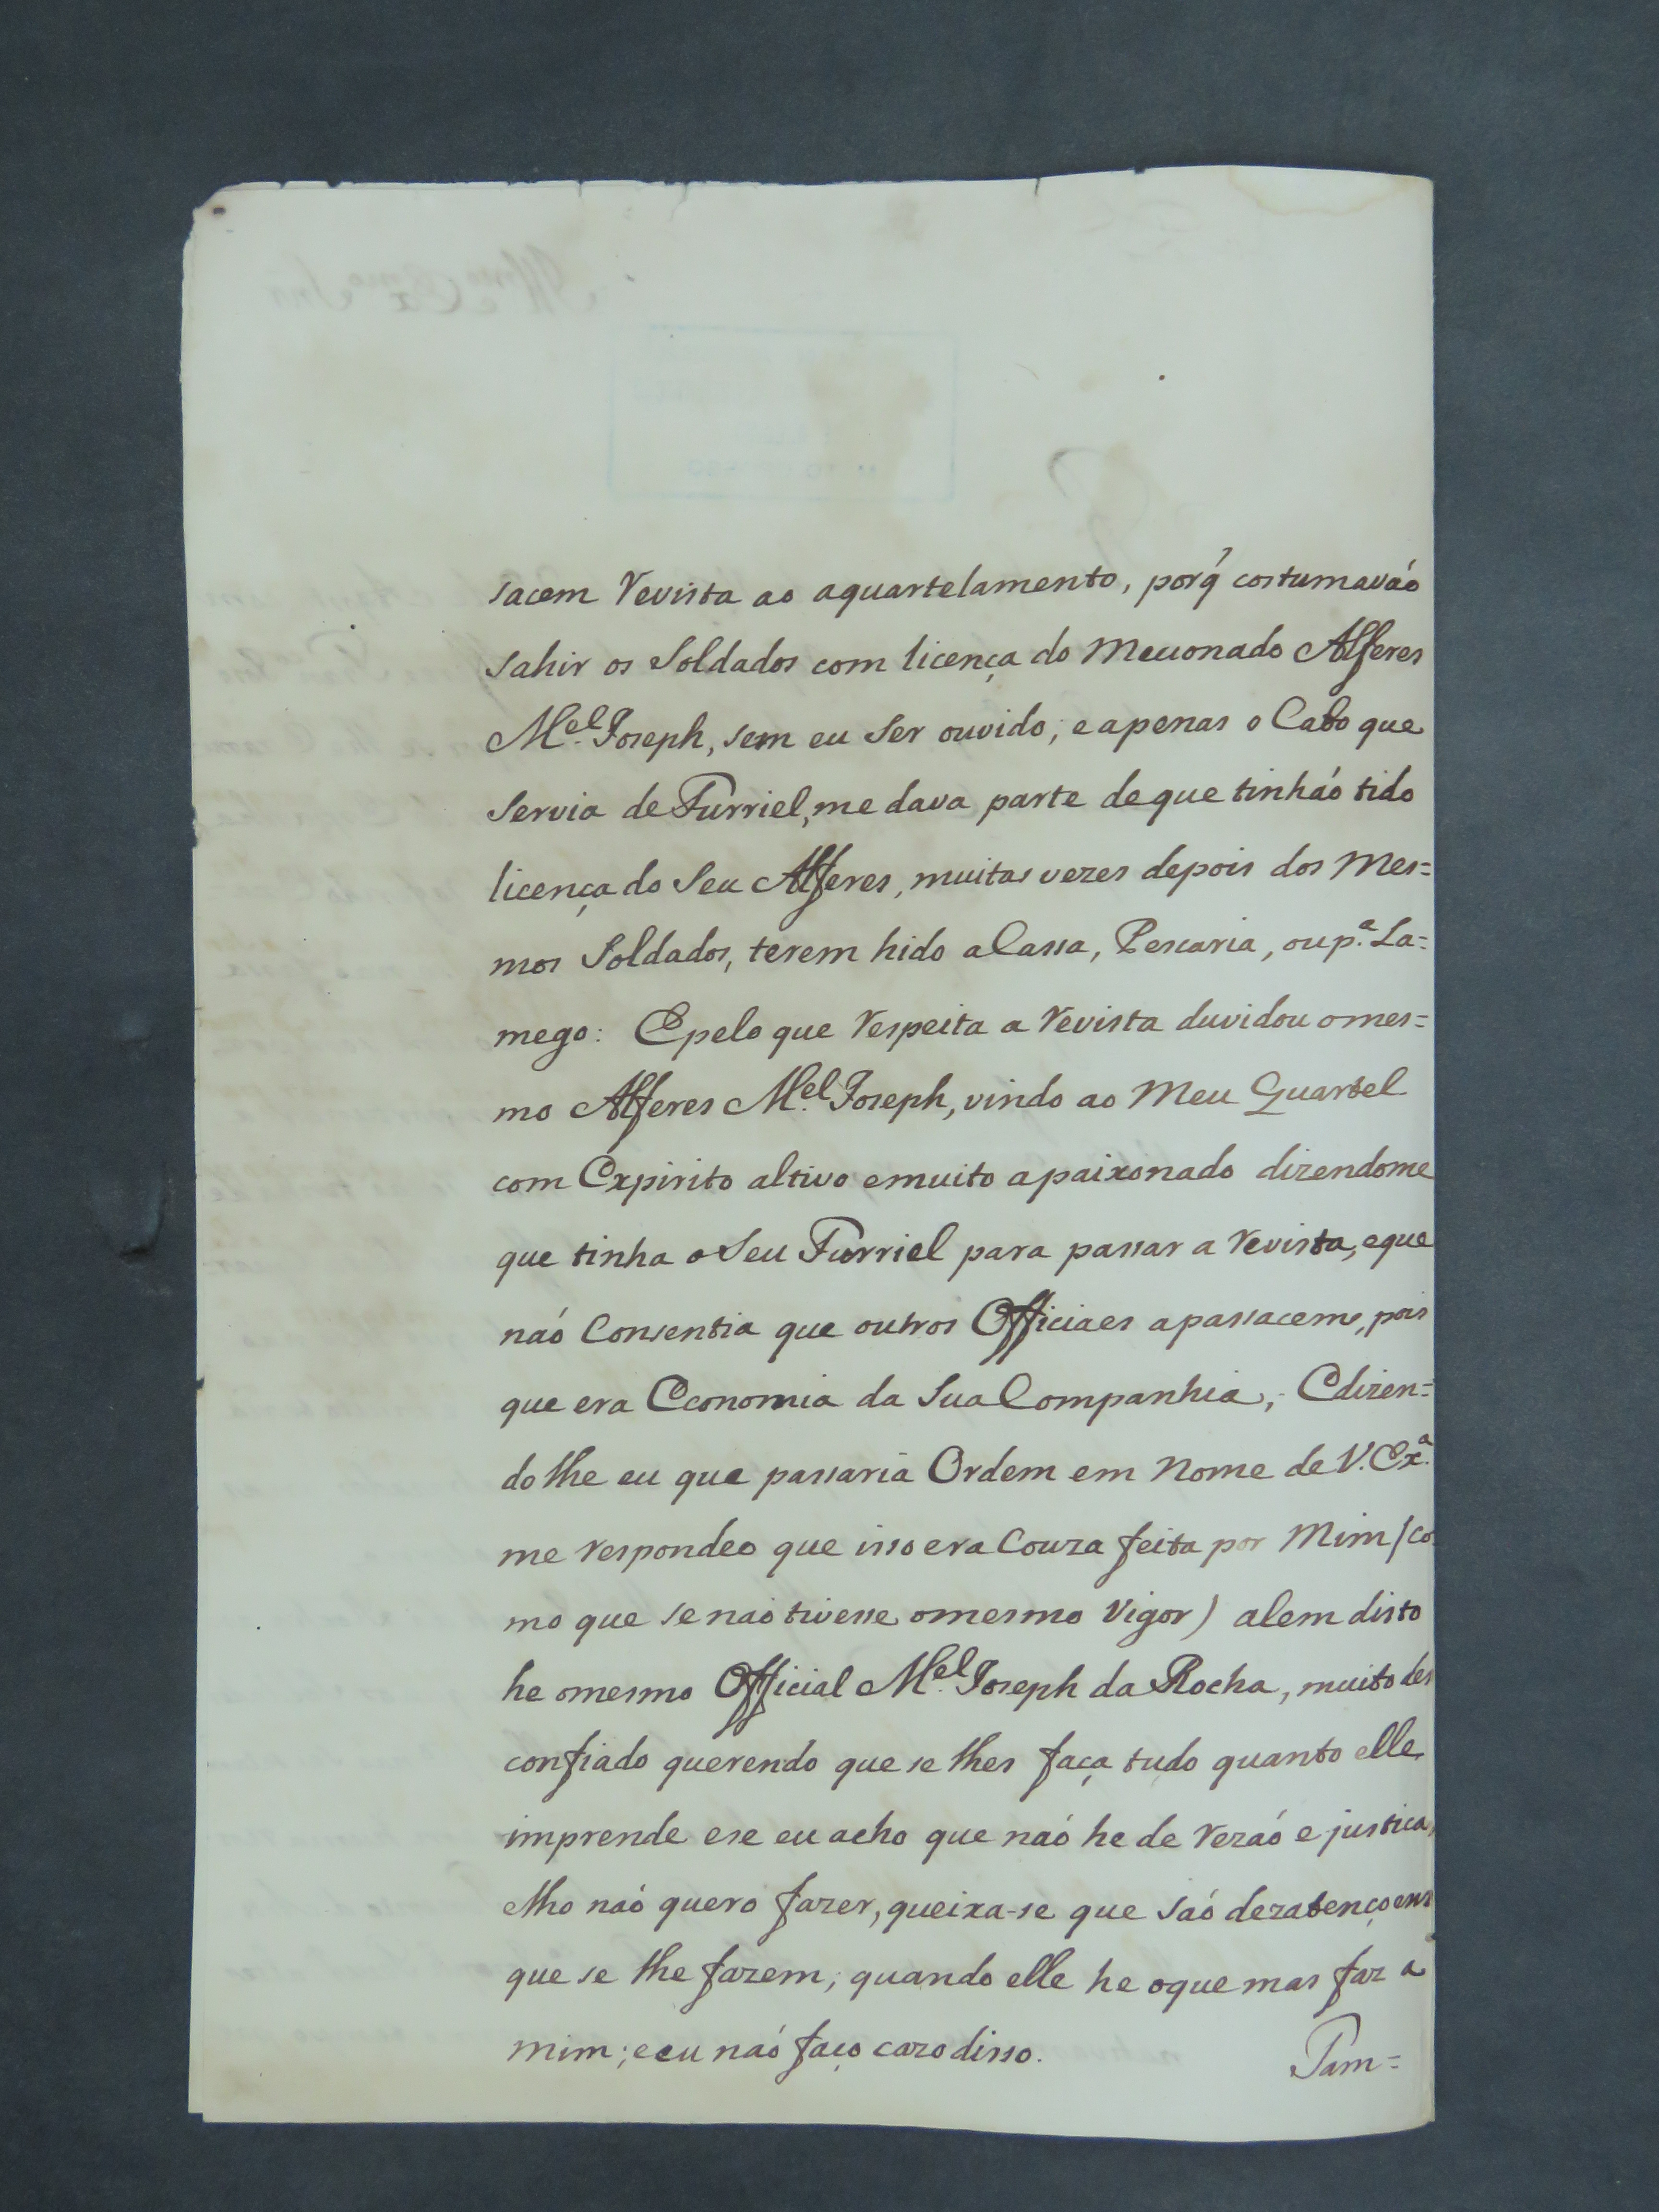 sacem Revista ao aquartelamento, porq̃ costumavaõ
sahir os Soldados com licença do Mecionado Alferes
M.el Joseph, sem eu ser ouvido; e apenas o Cabo que
servia de Furriel, me dava parte de que tinhaõ tido
licença do Seu Alferes, muitas vezes depois dos Mes=
mos Soldados, terem hido a Cassa, Pescaria, ou p.a La=
mego: E pelo que Respeita a Revista duvidou o mes=
mo Alferes M.el Joseph, vindo ao Meu Quartel
com Expirito altivo e muito apaixonado dizendome
que tinha o Seu Furriel para passar a Revista, e que
naõ Consentia que outros Officiaes a passacem, pois
que era Economia da Sua Companhia, E dizen=
do lhe eu que passaria Ordem em Nome de V. Ex.a
me respondeo que isso era Couza feita por Mim (co
mo que se naõ tivesse o mesmo Vigor) alem disto
he o mesmo Official M.el Joseph da Rocha, muito des
confiado querendo que se lhes faça tudo quanto elle
imprende e se eu acho que naõ he de Rezaõ e justica,
e lho naõ quero fazer, queixa-se que saõ dezatençoens
que se lhe fazem; quando elle he o que mas faz a
mim; e eu naõ faço cazo disso.
Tam=